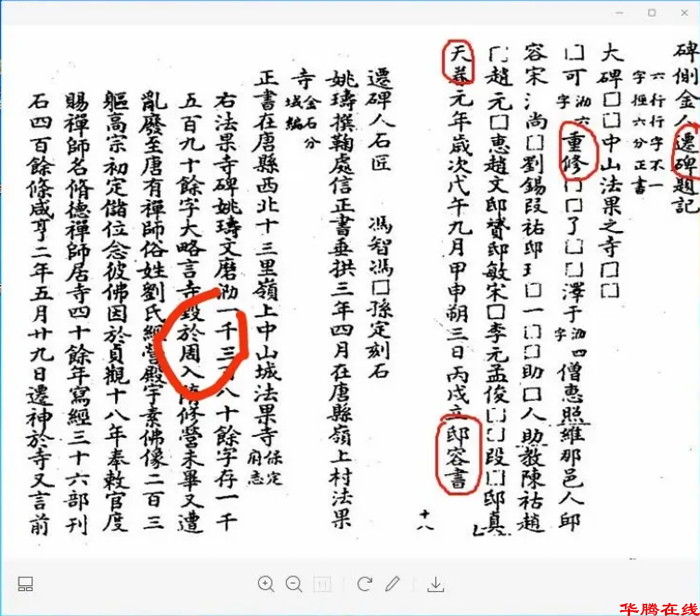 碑側金人遷碑題記
六行行字不一
字徑六分正書
大碑□□中山法果之寺□□
□可泐六字重修□□了□□澤于泐四字僧惠照維那邑人邸
容宋氵尚□劉錫段祐邸王□一□□助□人助教陳祜趙
□趙元□惠趙文邸贇邸敏宋□李元孟俊□□段□邸真
天眷元年歲次戊午九月甲申朔三日丙戌立邸容書
十八
遷碑人石匠 馮智馮□孫定刻石
姚璹撰鞠處信正書垂拱三年四月在唐縣嶺上村法果
寺金石分域編
正書在唐縣西北十三里嶺上中山城法果寺保定府志
右法果寺碑姚璹文磨泐一千三百八十餘字存一千
五百九十餘字大略言寺毀於周入隋修營未畢又遭
亂廢至唐有禪師俗姓劉氏經營殿宇素佛像二百三
軀高宗初定儲位念彼佛因於貞觀十八年奉敕官度
賜禪師名脩德禪師居寺四十餘年寫經三十六部刊
石四百餘條咸亨二年五月廿九日遷神於寺又言前
华腾在线